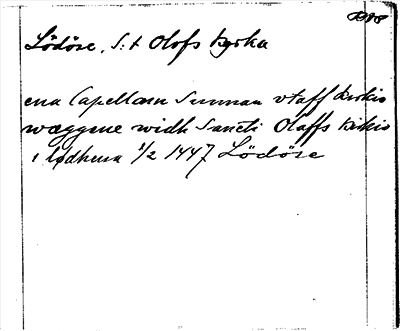 Lödöse, S:t Olofs kyrka
ena Capellam sunnan vtaff kirkio
wæggene widh Sancti Olaffs kirkio
i lødhusa 1/2 1447 Lödöse